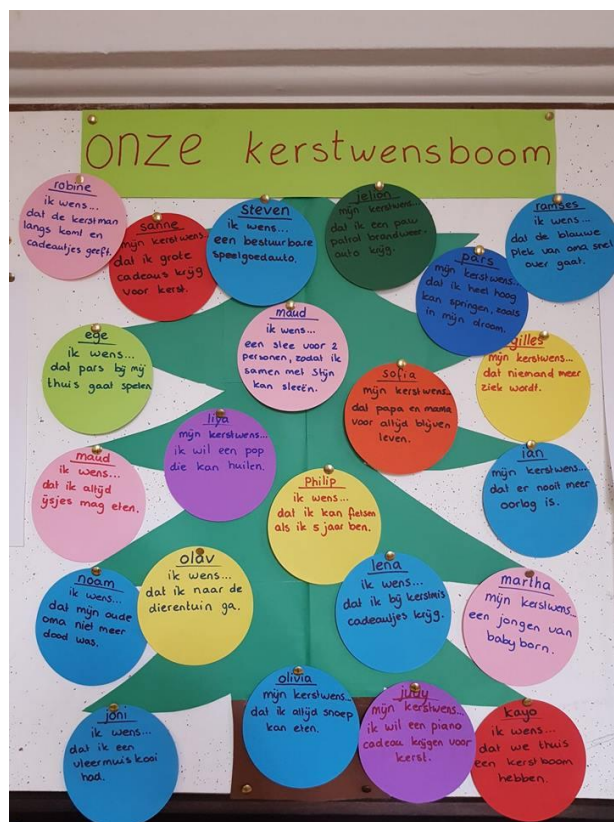 onze kerstwensboom
robine
ik wens...
dat de kerstman
langs komt en
cadeautjes geeft.
sanne
mijn kerstwens...
dat ik grote
cadeaus krijg
voor kerst.
Steven
ik wens...
een bestuurbare
speelgoedauto.
jelion
mijn kerstwens...
dat ik een paw
patrol brandweer-
auto krijg.
pars
mijn kerstwens...
dat ik heel hoog
kan springen, zoals
in mijn droom.
ramses
ik wens...
dat de blauwe
plek van oma snel
over gaat.
ege
ik wens...
dat pars bij mij
thuis gaat spelen.
maud
ik wens...
een slee voor 2
personen, zodat ik
samen met Stijn
kan sleeën.
sofia
mijn kerstwens...
dat papa en mama
voor altijd blijven
leven.
gilles
mijn kerstwens...
dat niemand meer
ziek wordt.
maud
ik wens...
dat ik altijd
ijsjes mag eten.
liya
mijn kerstwens...
ik wil een pop
die kan huilen.
Philip
ik wens...
dat ik kan fietsen
als ik 5 jaar ben.
ian
mijn kerstwens...
dat er nooit meer
oorlog is.
noam
ik wens...
dat mijn oude
oma niet meer
dood was.
olav
ik wens...
dat ik naar de
dierentuin ga.
lena
ik wens...
dat ik bij kerstmis
cadeautjes krijg.
martha
mijn kerstwens...
een jongen van
baby born.
joni
ik wens...
dat ik een
vleermuis kooi
had.
olivia
mijn kerstwens...
dat ik altijd snoep
kan eten.
judy
mijn kerstwens...
ik wil een piano
cadeau krijgen voor
kerst.
kayo
ik wens...
dat we thuis
een kerstboom
hebben.